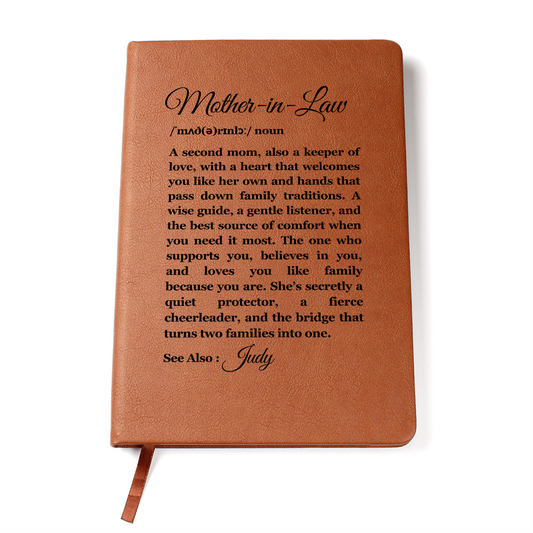 Mother-in-Law
/ˈmʌð(ə)rɪnlɔː/ noun
A second mom, also a keeper of
love, with a heart that welcomes
you like her own and hands that
pass down family traditions. A
wise guide, a gentle listener, and
the best source of comfort when
you need it most. The one who
supports you, believes in you,
and loves you like family
because you are. She's secretly a
quiet protector, a fierce
cheerleader, and the bridge that
turns two families into one.
See Also : Judy